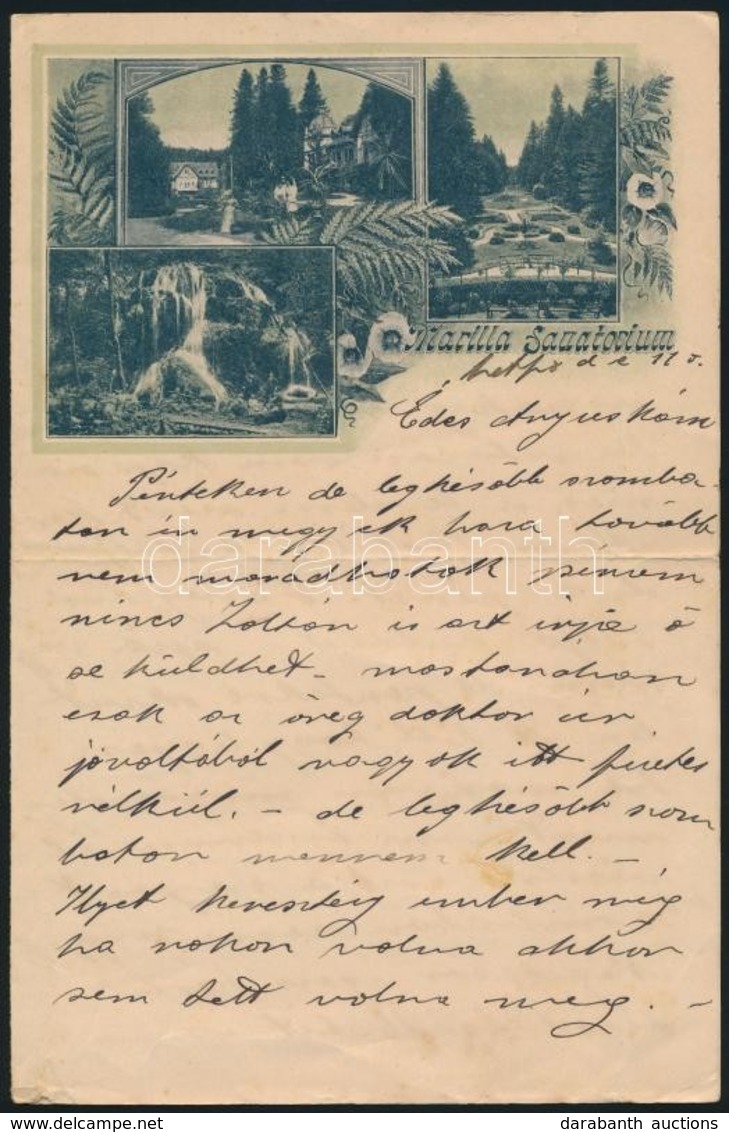 Marilla Sanatorium
d e 11 ó.
Édes Anyuskám
Pénteken de legkésőbb szomba-
ton én megyek haza tovább
nem maradhatok pénzem
nincs Zoltán is azt írja ő
se küldhet - mostanában
csak az öreg doktor úr
jóvoltából vagyok itt fizetés
nélkül. - de legkésőbb szom
baton mennem kell. -
Ilyet keresztény ember még
ha rokon volna akkor
sem tett volna meg. -
darabanth
darabanth auctions